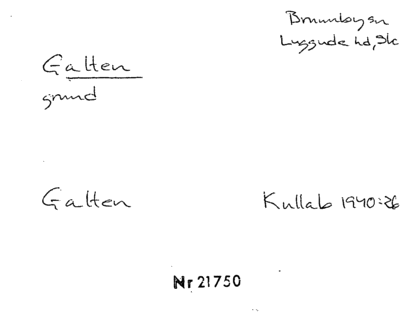 Brunnby sn
Luggude hd, Sk
Galten
grund
Galten
Kullab 1940:26
Nr 21750